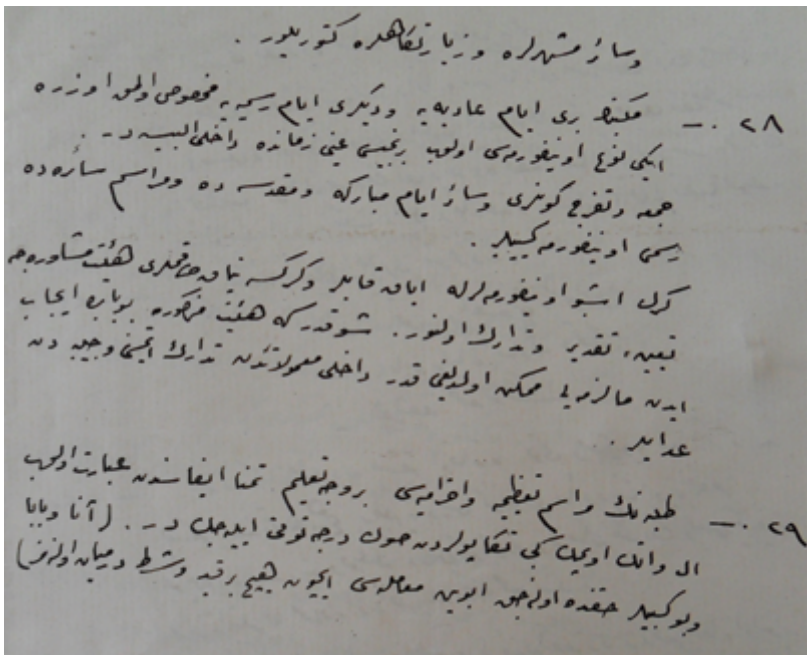 وسائر مشهرلره وزيارتكاهلره كتوريلور .
٢٨ — مكتبك برى ايام عاديه يه وديكرى ايام رسميه يه مخصوص اولمق اوزره
ايكى نوع اونيفورمه سى اولوب برنجيسى عينى زمانده داخلى البسه در .
جمعه وتفرج كونلرى وسائر ايام مباركه ومقدسه ده ومراسم سائره ده
رسمى اونيفورمه كييلير .
كرك اشبو اونيفورمه لرله اياق قابلر وكركسه يتاق طاقملرى هيئت مشاوره جه
تعيين، تقدير وتدارك اولنور . شوقدركه هيئت مذكوره بوبابده ايجاب
ايدن مالزمه يى ممكن اولديغى قدر داخلى معمولاتندن تدارك ايتمكى وجيبه دن
عد ايدر .
٢٩ — طلبه نك مراسم تعظيميه واحتراميه سى بروجه تعليم تمنا ايفاسندن عبارت اولوب
ال واتك اوپمك كبى تكاپولردن صوك درجه توقى ايديله جكدر . (آنا وبابا
وبو كبيلر حقنده اولنه جق ابوين معامله سى ايچون هيچ بر قيد وشرط درميان اولنه مز)